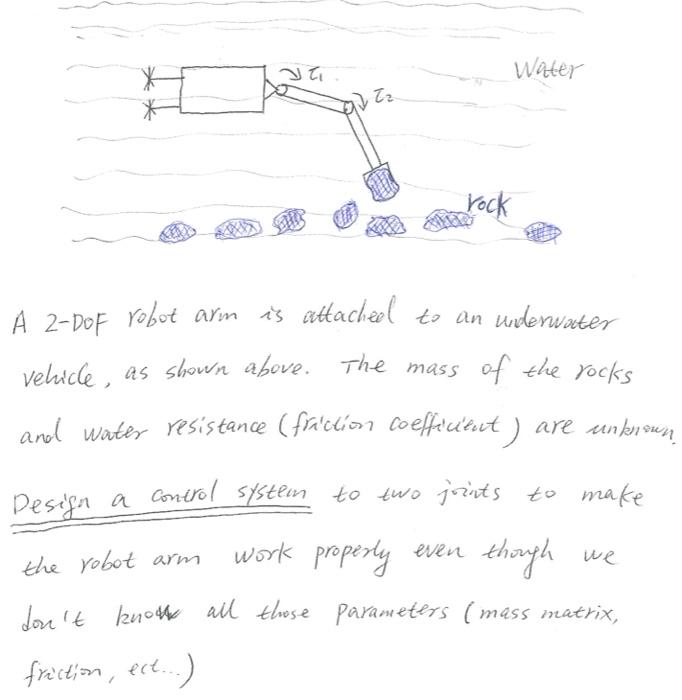 Water
τ₁
τ₂
rock
A 2-DOF robot arm is attached to an underwater
vehicle, as shown above. The mass of the rocks
and water resistance (friction coefficient) are unknown.
Design a control system to two joints to make
the robot arm work properly even though we
don't know all those parameters (mass matrix,
friction, ect...)